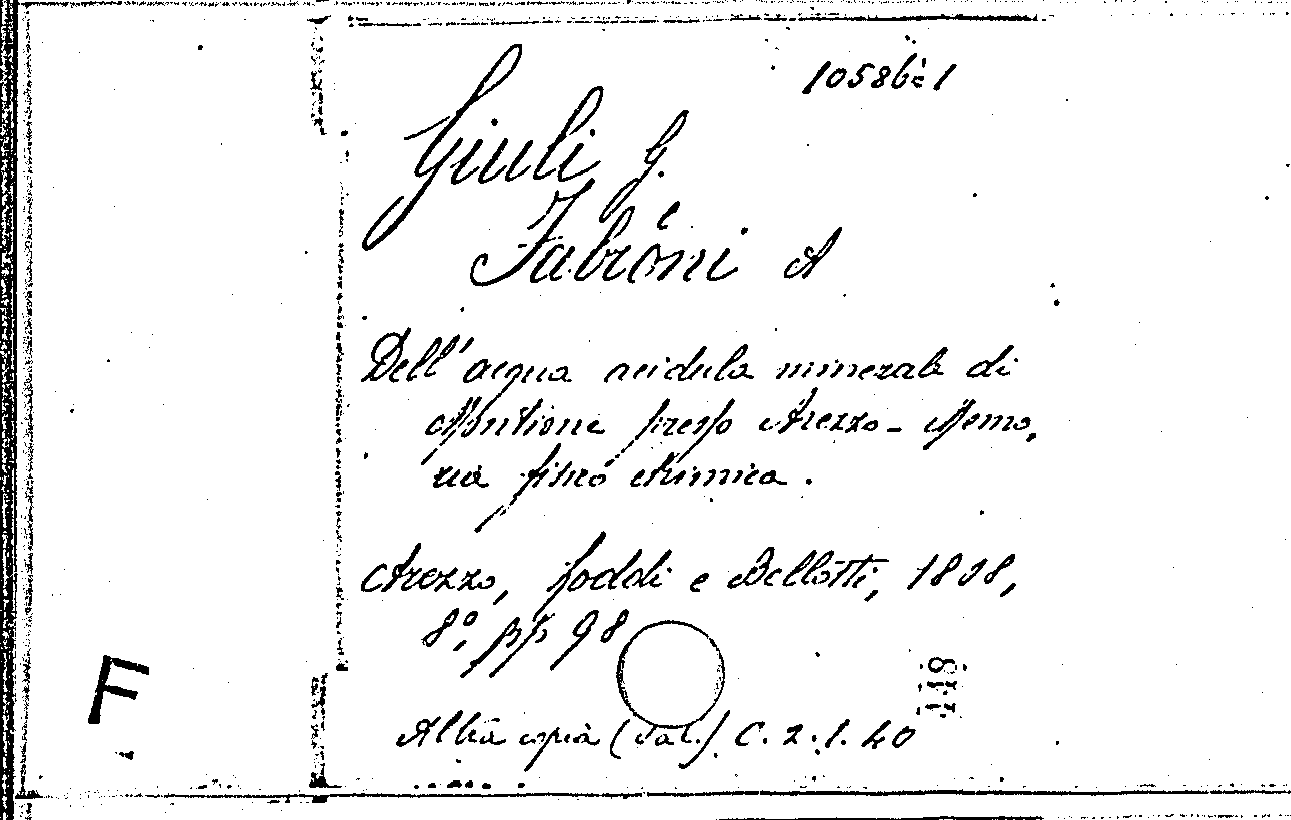 1058bis1
Giuli G.
e
Fabroni A
Dell'acqua acidula minerale di
Montione presso Arezzo - Memo,
ria fisico chimica.
Arezzo, e Bellotti,
8°, pp 98
Altra copia (Sal.) C. 2. 1. 40
F